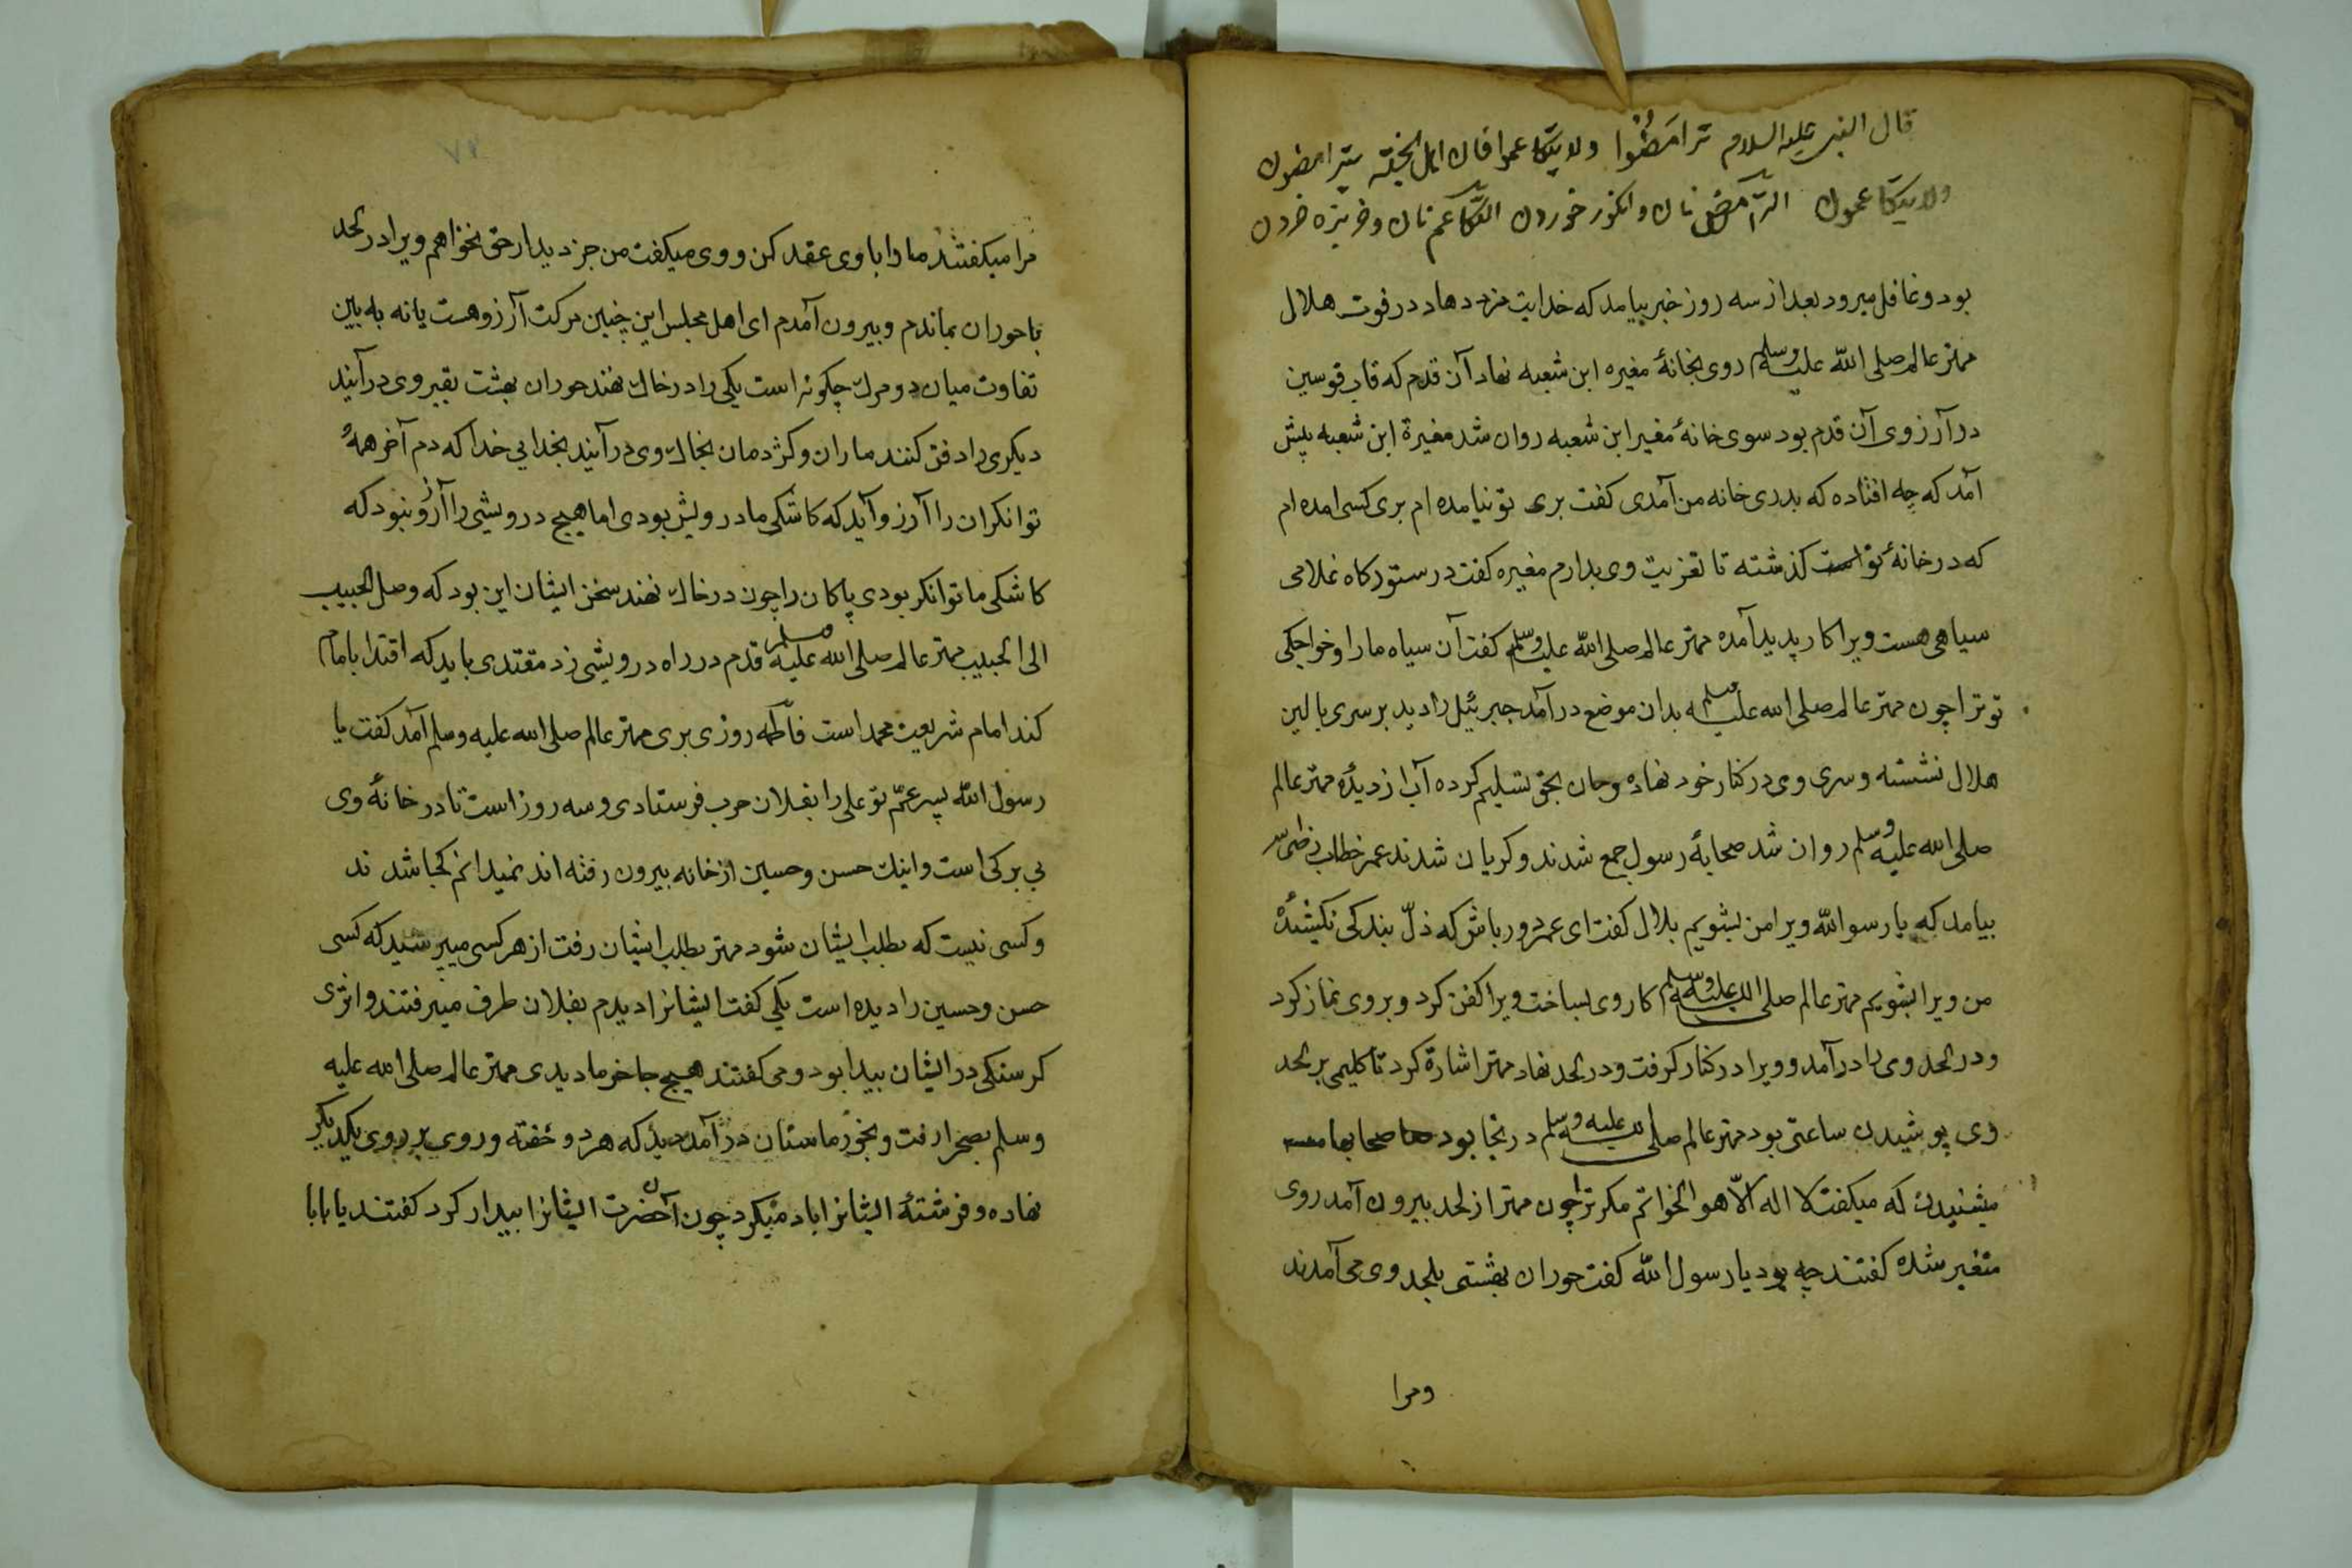 قال النبی علیه السلام ترامضوا ولا یتکاعموا فان اهل الجنّة یترامضون
ولا یتکاعمون الترامض نان و انکور خوردن التکاعم نان و خربزه خردن
بود و غافل میرود بعد از سه روز خبر بیامد که خدایت مزد دهاد در فوت هلال
مهتر عالم صلی الله علیه وسلم روی بخانهٔ مغیره ابن شعبه نهاد آن قدم که قاب قوسین
در آرزوی آن قدم بود سوی خانهٔ مغیر ابن شعبه روان شد مغیرة ابن شعبه پیش
آمد که چه افتاده که بدری خانه من آمدی کفت بری تو نیامده ام بری کسی امده ام
که در خانهٔ تو است کذشته تا تعزیت وی بدارم مغیره کفت در ستورکاه غلامی
سیاهی هست ویرا کار پدید آمده مهتر عالم صلی الله علیه وسلم کفت آن سیاه ما را و خواجکی
تو ترا چون مهتر عالم صلی الله علیه وسلم بدان موضع در آمد جبرئیل را دید بر سری بالین
هلال نشسته و سری وی در کنار خود نهاده و جان بحق تسلیم کرده آب از دیدهٔ مهتر عالم
صلی الله علیه وسلم روان شد صحابهٔ رسول جمع شدند و کریان شدند عمر خطاب رضی
بیامد که یا رسو الله ویرا من بشویم بلال کفت ای عمر دور باش که ذلّ بندکی نکشیدهٔ
من ویرا بشویم مهتر عالم صلی الله علیه وسلم کار وی بساخت ویرا کفن کرد و بر وی نماز کرد
و در لحد وی را درآمد و ویرا در کنار کرفت و در لحد نهاد مهتر اشارة کرد تا کلیمی بر لحد
وی پوشیدن ساعتی بود مهتر عالم صلی لله علیه وسلم در نجا بود صحابها
میشنیدن که میکفت لا اله الّا هو الخواتم مکر ترا چون مهتر از لحد بیرون آمد روی
متغیر شده کفتند چه بود یا رسول الله کفت حوران بهشتی بلحد وی می آمدند
ومرا
مرا میکفتند ما را با وی عقد کن و وی میکفت من جز دیدار حق نخواهم ویرا در لحد
با حوران بماندم و بیرون آمدم ای اهل مجلس این چنین مرکت آرزو هست یا نه به بین
تفاوت میان دو مرك چکونه است یکی را در خاك نهند حوران بهشت بقبر وی درآیند
دیکری را دفن کنند ماران و کژدمان بخاك وی درآیند بخدایی خدا که دم آخر همهٔ
توانکران را آرزو آید که کاشکی ما درویش بودی اما هیچ درویشی را آرزو نبود که
کاشکی ما توانکر بودی پاکان را چون در خاك نهند سخن ایشان این بود که وصل الحبیب
الی الحبیب مهتر عالم صلی الله علیه وسلم قدم در راه درویشی زد مقتدی باید که اقتدا بامام
کند امام شریعت محمد است فاطمه روزی بری مهتر عالم صلی الله علیه وسلم آمد کفت یا
رسول الله پسر عمّ تو علی را بفلان حرب فرستادی و سه روز است تا در خانهٔ وی
بی برکی است و اینك حسن و حسین از خانه بیرون رفته اند نمیدانم کجا شدند
و کسی نیست که بطلب ایشان شود مهتر بطلب ایشان رفت از هر کسی میپرسید که کسی
حسن و حسین را دیده است یکی کفت ایشانرا دیدم بفلان طرف میرفتند و اثری
کرسنکی در ایشان بیدا بود و می کفتند هیچ جا خرما دیدی مهتر عالم صلی الله علیه
وسلم بصحرا رفت و بخورماستان درآمد دید که هر دو خفته و روی بر روی یکدیکر
نهاده و فرشتهٔ ایشانرا باد میکرد چون آن حضرت ایشانرا بیدار کرد کفتند یا بابا